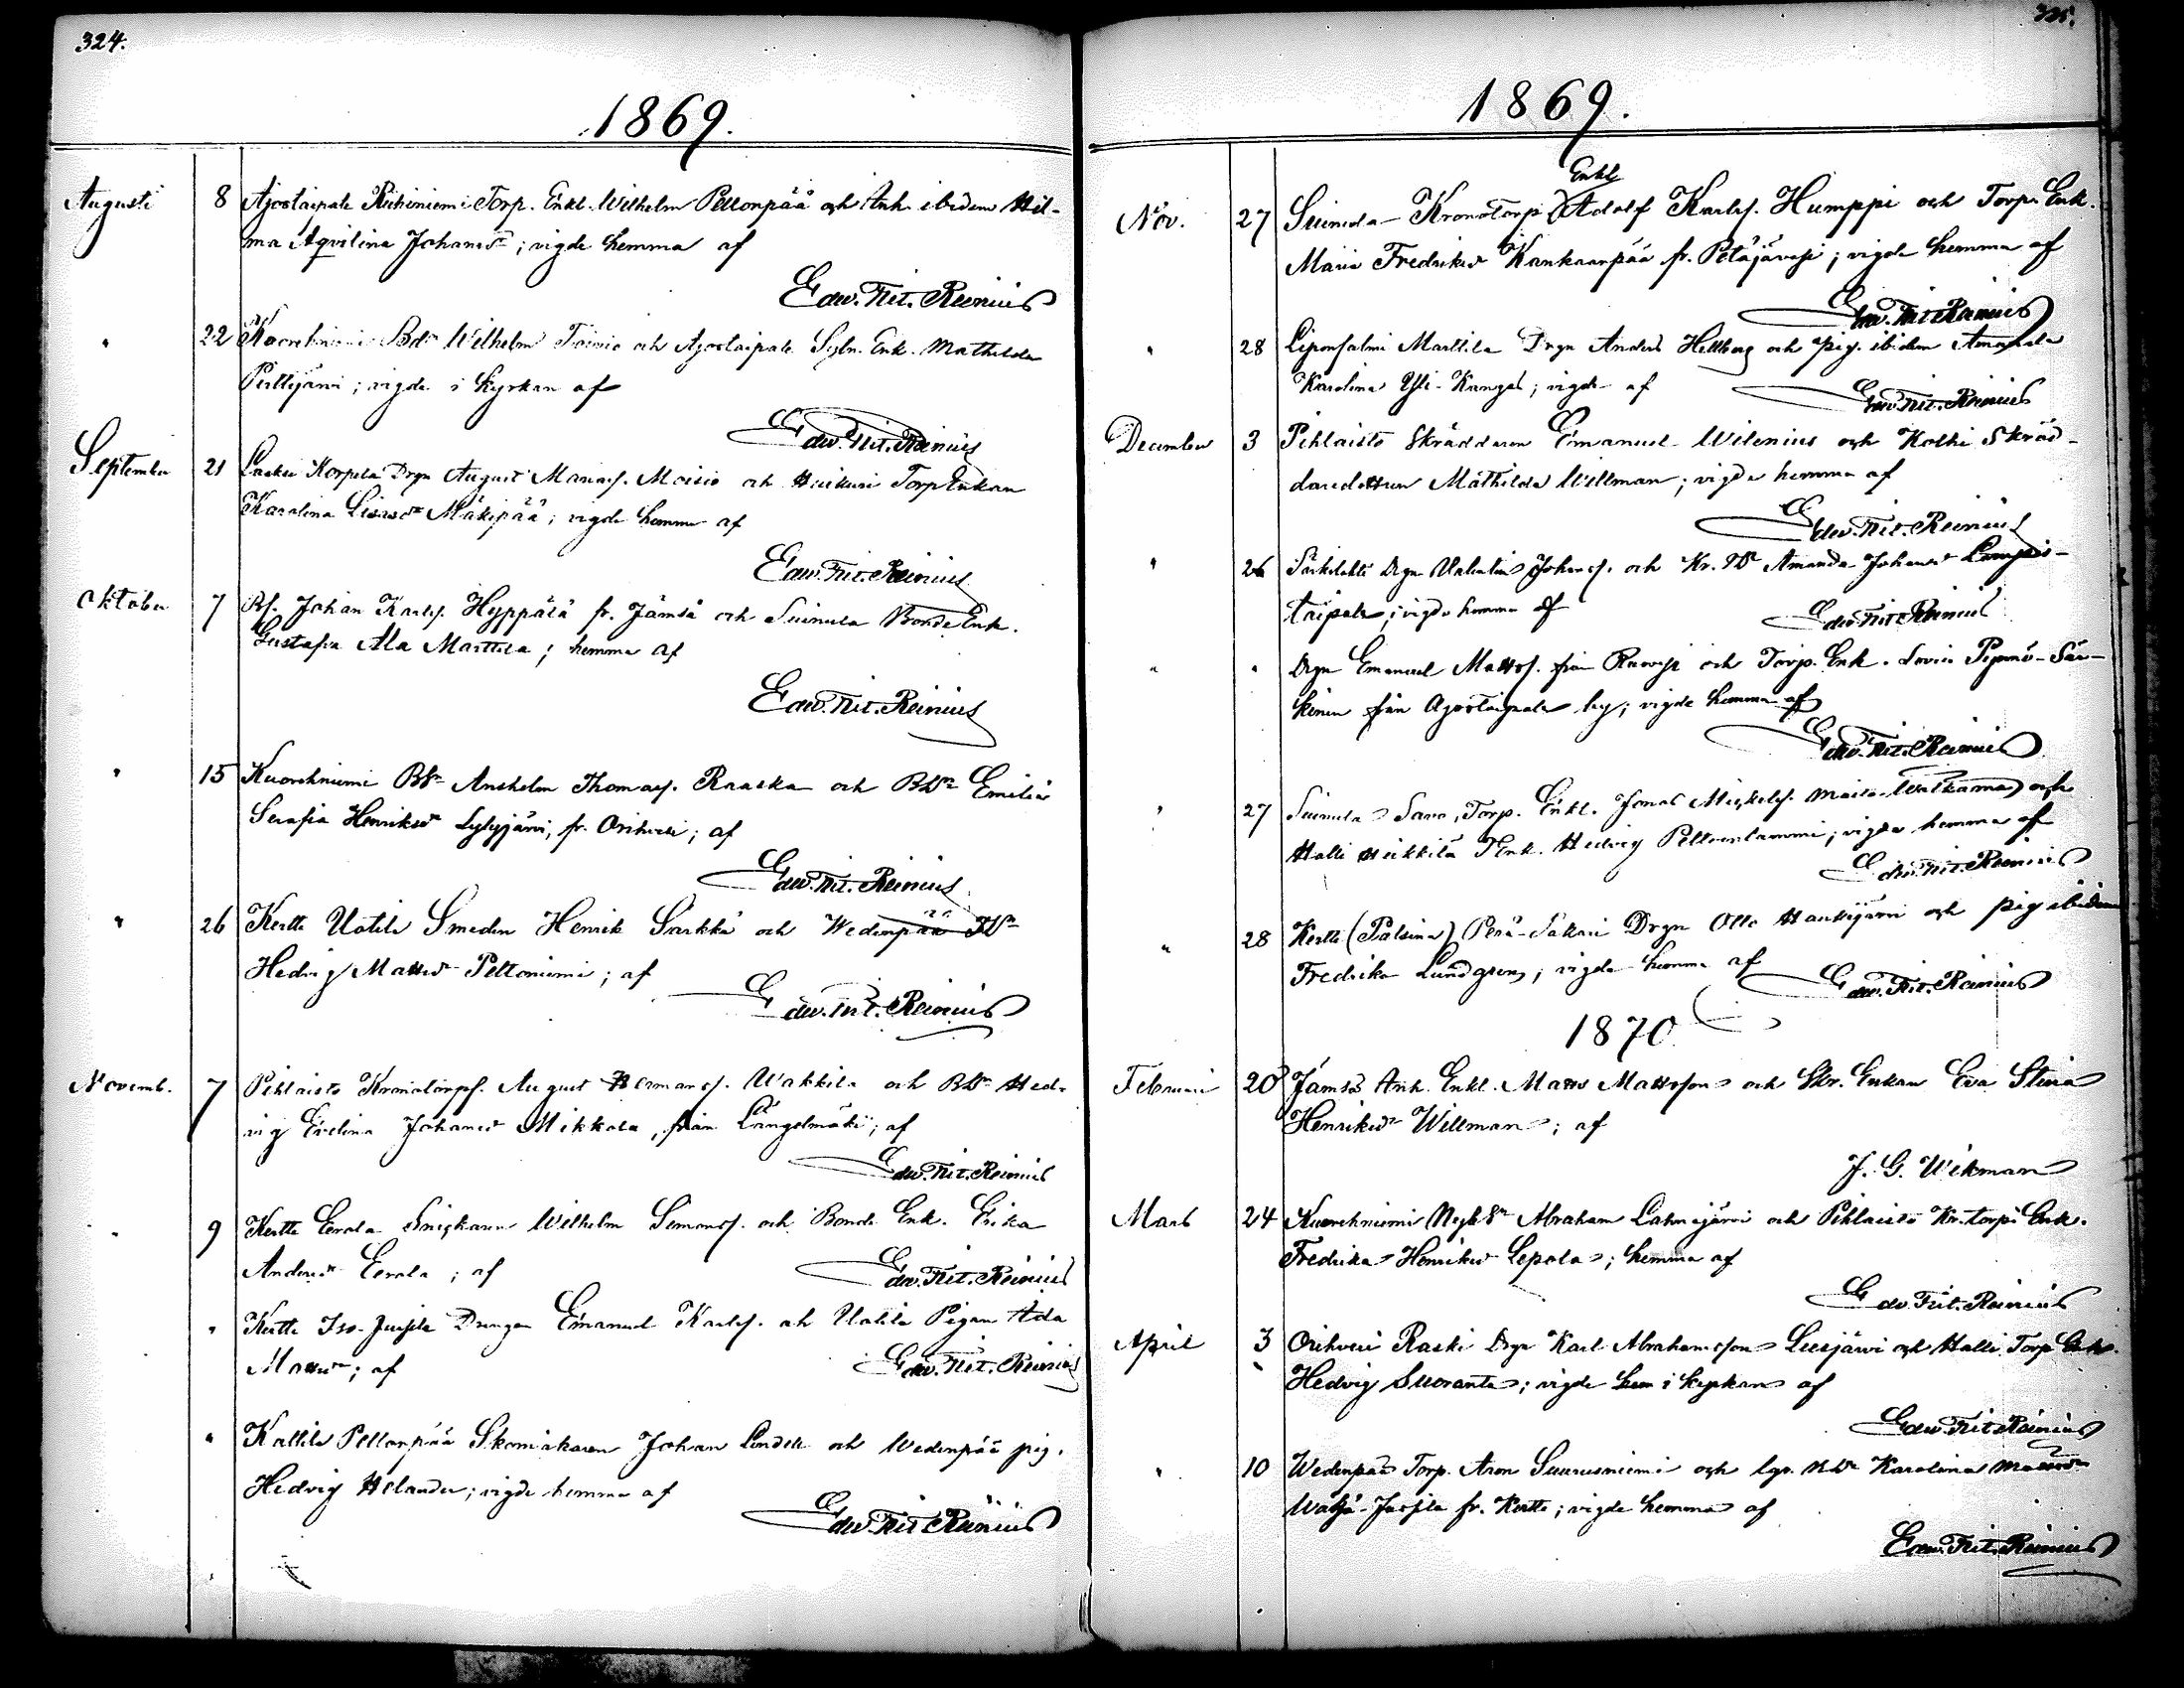 324.
1869.
Augusti 8 Ajostaipale Riihiniemi Torp. Enkl. Wilhelm Peltonpää och Enk. ibidem Wil-
ma Aqvilina Johansdr; vigde hemma af
Edw. Frit. Reinius
" 22 Kuorehniemi Bds Wilhelm Toivio och Ajostaipale Sytn. Enk. Mathilda
Perttijärvi; vigde i kyrkan af
Edw. Frit. Reinius
September 21 Korpela Drgn August Manass. Moisio och Torp Enkan
Karolina Mäkipää; vigde hemma af
Edw. Frit. Reinius
Oktober 7 Johan Karlss. Hyppälä fr. Jämsä och Suinula Bonde Enk.
Gustafva Ala Marttila; hemma af
Edw. Frit. Reinius
" 15 Kuorehniemi BSn Anshelm Thomass. Raaska och BDr Emilia
Serafia Henriksdr Lylyjärvi, fr. Orihvesi; af
Edw. Frit. Reinius
" 26 Kertte Uotila Smeden Henrik Särkkä och Wedenpää
Hedvig Mattsdr Peltoniemi; af
Edw. Frit. Reinius
Novemb. 7 Pihlaisto Kronotorpf. August Hermanss. Wakkila och BDr Hed-
vig Evelina Johansdr Mikkola, från Längelmäki; af
Edw. Frit. Reinius
" 9 Kertte Eerola Snickaren Wilhelm Simonss. och Bonde Enk. Erika
Andersdr Eerola; af
Edw. Frit. Reinius
" Kertte Iso-Jussila Drengen Emanuel Karlss. och Uotila Pigan Ada
Mattsdr; af
Edw. Frit. Reinius
" Kallila Peltonpää Skomakaren Johan Lindell och Wedenpää pig.
Hedvig Helander; vigde hemma af
Edw. Frit. Reinius
325.
1869.
Enkl
Nov. 27 Suinula Kronotorp Adolf Karlss. Humppi och Torps Enk.
Maria Fredriksdr Kankaanpää fr. Petäjävesi; vigde hemma af
Edw. Frit. Reinius
" 28 Liponsalmi Marttila Drgn Anders Hellberg och pig. ibidem Amanda
Karolina Yli-Kangas; vigde af
Edw. Frit. Reinius
December 3 Pihlaisto Skräddaren Emanuel Wilenius och Kolhi Skräd-
daredottren Mathilda Willman; vigde hemma af
Edw. Frit. Reinius
" 26 Särkilahti Drgn Johanss. och Kr. Dr Amanda Johansdr Lampis-
taipale; vigde hemma af
Edw. Frit. Reinius
" " Drgn Emanuel Mattss. från och Torp. Enk. Lovisa Sär-
kinen från Ajostaipale by; vigde hemma af
Edw. Frit. Reinius
" 27 Suinula Savo, Torp. Enkl. Jonas Mickelss. och
Halli Heikkilä Enk. Hedvig Peltovenlammi; vigde hemma af
Edw. Frit. Reinius
" 28 Kertte (Palsina) Perä-Sakari Drgn Otto Haukijärvi och pig ibidem
Fredrika Lundgren; vigde hemma af
Edw. Frit. Reinius
1870
Februari 20 Jämsä Enkl. Matts Mattsson och Enkan Eva Stina
Henriksdr Willman; af
J. G. Wikman
Mars 24 Kuorehniemi Abraham Lahnajärvi och Pihlaisto Kr. torps Enk.
Fredrika Henriksdr Lepola; hemma af
Edw. Frit. Reinius
April 3 Orihvesi Raski Drgn Karl Abrahamsson Leesjärvi och Halli Torp Enk.
Hedvig Suoranta; vigde i kyrkan af
Edw. Frit. Reinius
" 10 Wedenpää Torp. Aron Suurusniemi och Karolina Mattsdr
Jussila fr. Kertte; vigde hemma af
Edw. Frit. Reinius